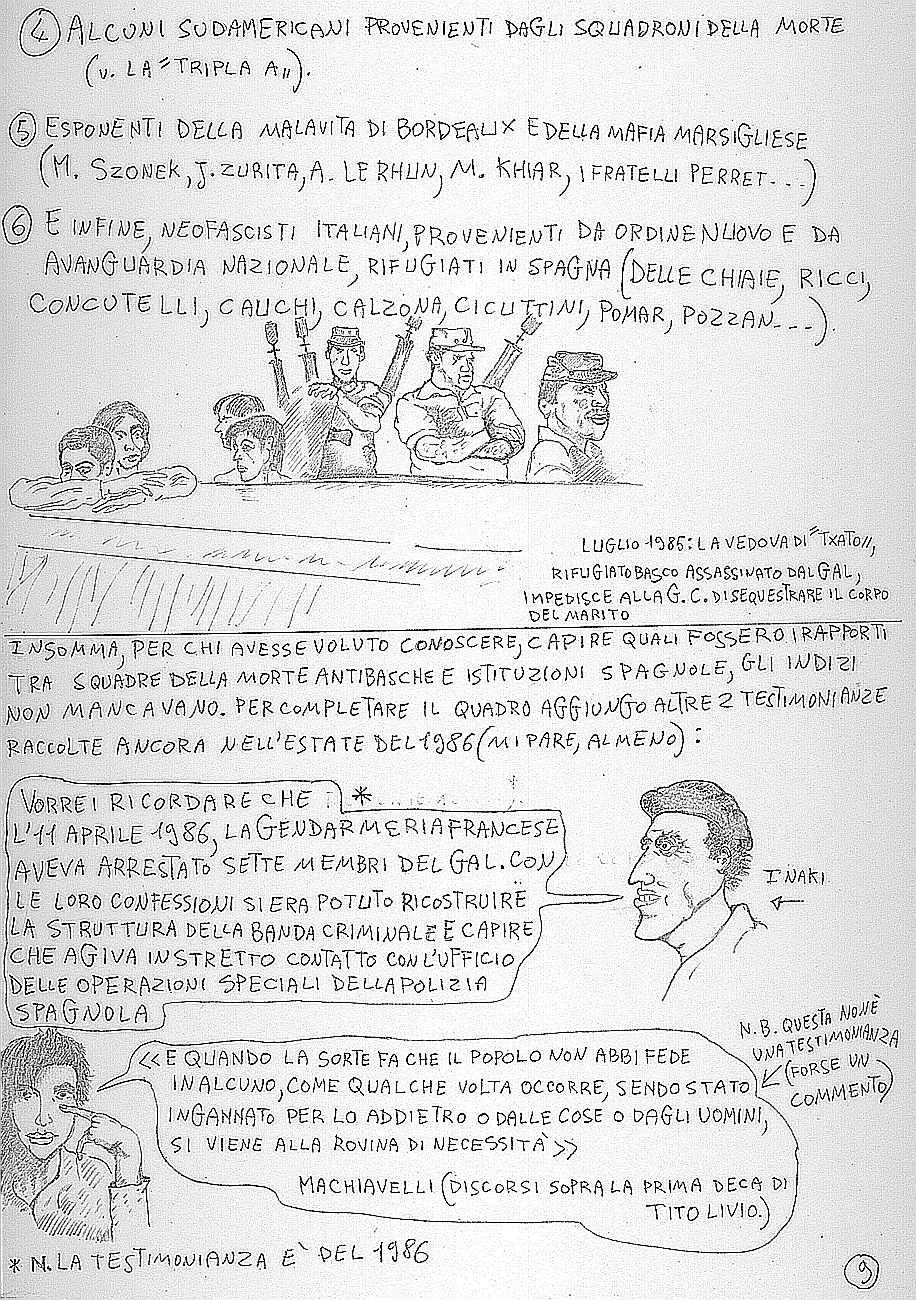 ④ ALCUNI SUDAMERICANI PROVENIENTI DAGLI SQUADRONI DELLA MORTE
(V. LA "TRIPLA A").
⑤ ESPONENTI DELLA MALAVITA DI BORDEAUX E DELLA MAFIA MARSIGLIESE
(M. SZONEK, J. ZURITA, A. LERHUN, M. KHIAR, I FRATELLI PERRET...)
⑥ E INFINE, NEOFASCISTI ITALIANI, PROVENIENTI DA ORDINE NUOVO E DA
AVANGUARDIA NAZIONALE, RIFUGIATI IN SPAGNA (DELLE CHIAIE, RICCI,
CONCUTELLI, CAUCHI, CALZONA, CICUTTINI, POMAR, POZZAN...).
LUGLIO 1985: LA VEDOVA DI "TXATO",
RIFUGIATO BASCO ASSASSINATO DAL GAL,
IMPEDISCE ALLA G.C. DI SEQUESTRARE IL CORPO
DEL MARITO
INSOMMA, PER CHI AVESSE VOLUTO CONOSCERE, CAPIRE QUALI FOSSERO I RAPPORTI
TRA SQUADRE DELLA MORTE ANTIBASCHE E ISTITUZIONI SPAGNOLE, GLI INDIZI
NON MANCAVANO. PER COMPLETARE IL QUADRO AGGIUNGO ALTRE 2 TESTIMONIANZE
RACCOLTE ANCORA NELL'ESTATE DEL 1986 (MI PARE, ALMENO):
VORREI RICORDARE CHE *
L'11 APRILE 1986, LA GENDARMERIA FRANCESE
AVEVA ARRESTATO SETTE MEMBRI DEL GAL. CON
LE LORO CONFESSIONI SI ERA POTUTO RICOSTRUIRE
LA STRUTTURA DELLA BANDA CRIMINALE E CAPIRE
CHE AGIVA IN STRETTO CONTATTO CON L'UFFICIO
DELLE OPERAZIONI SPECIALI DELLA POLIZIA
SPAGNOLA
IÑAKI
N.B. QUESTA NON È
UNA TESTIMONIANZA
(FORSE UN
COMMENTO)
<<E QUANDO LA SORTE FA CHE IL POPOLO NON ABBI FEDE
IN ALCUNO, COME QUALCHE VOLTA OCCORRE, SENDO STATO
INGANNATO PER LO ADDIETRO O DALLE COSE O DAGLI UOMINI,
SI VIENE ALLA ROVINA DI NECESSITÀ>>
MACHIAVELLI (DISCORSI SOPRA LA PRIMA DECA DI
TITO LIVIO.)
* N. LA TESTIMONIANZA E' DEL 1986
⑨